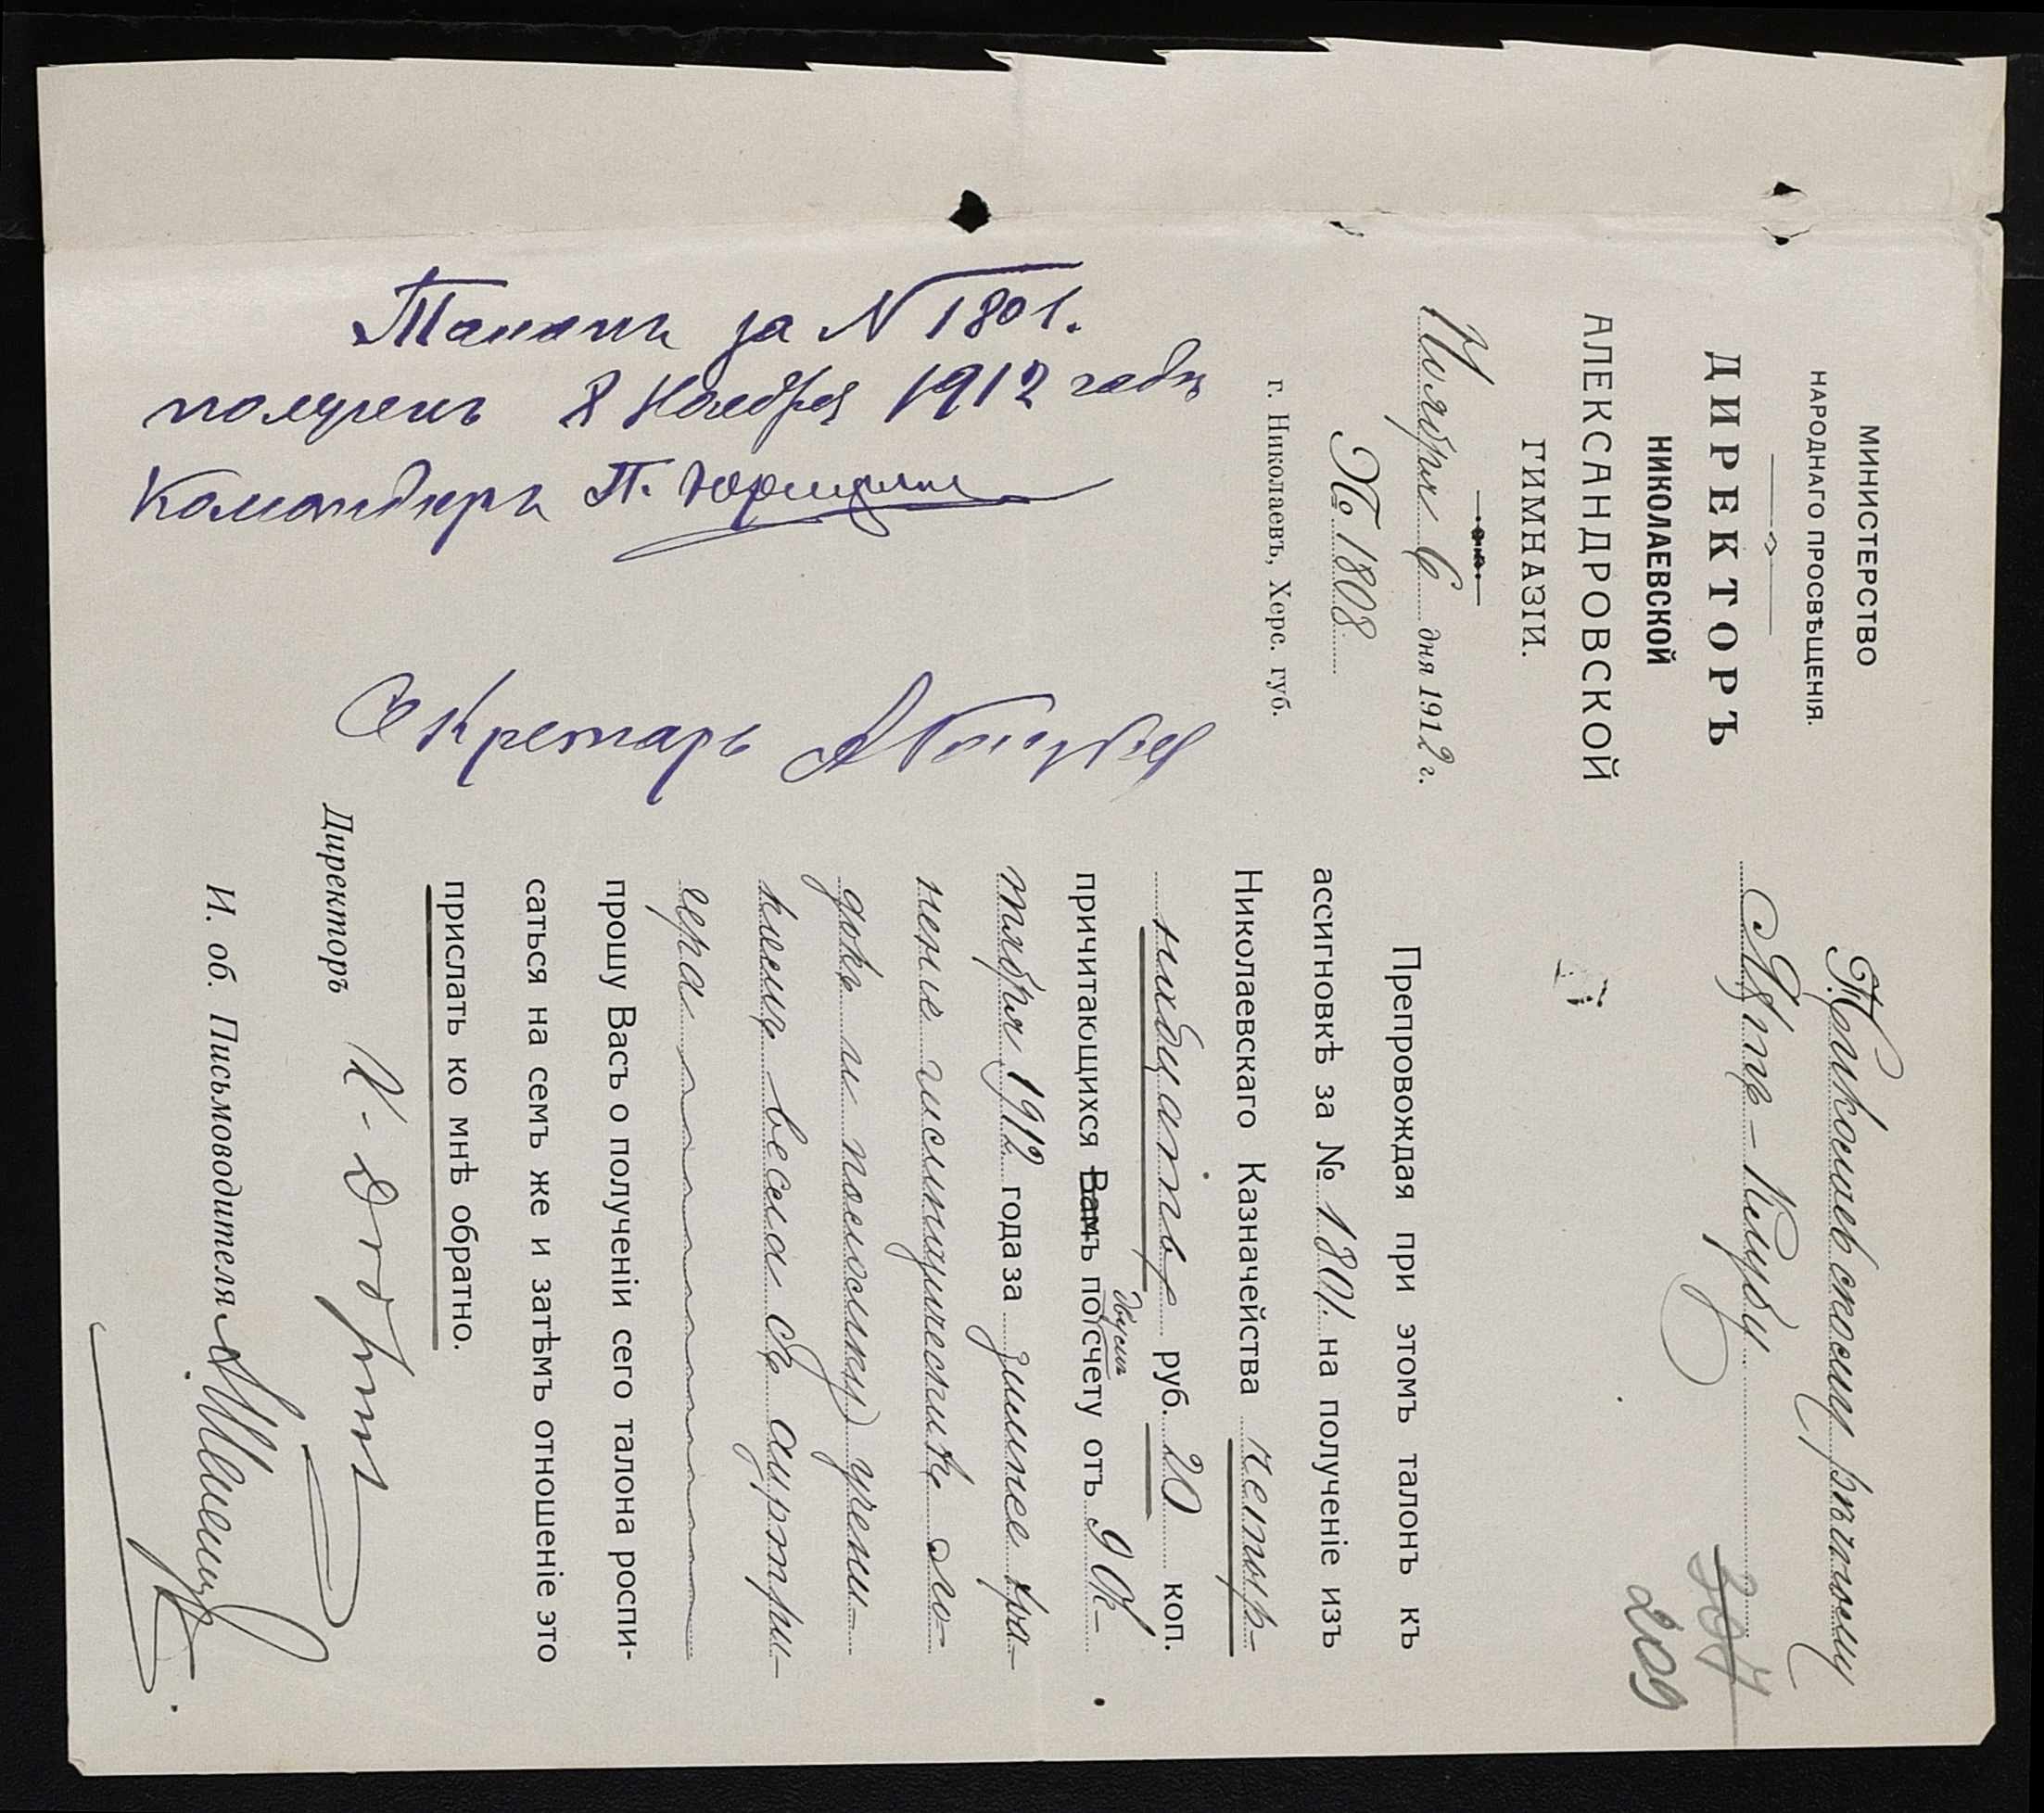 МИНИСТЕРСТВО
НАРОДНАГО ПРОСВѢЩЕНІЯ.
ДИРЕКТОРЪ
НИКОЛАЕВСКОЙ
АЛЕКСАНДРОВСКОЙ
ГИМНАЗІИ.
Ноября 6 дня 1912 г.
№ 1808
г. Николаевъ, Херс. губ.
207
209
Николаевскому рѣчному
Яхтъ-Клубу
Препровождая при этомъ талонъ къ
ассигновкѣ за № 1801 на полученіе изъ
Николаевскаго Казначейства четыр-
надцать руб. 20 коп.
причитающихся Вамъ по двумъ счету отъ 9 Ок-
тября 1912 года за зимнее хра-
неніе гимназической ло-
дки и поломку учени-
комъ весла съ аутри-
гера
прошу Васъ о полученіи сего талона роспи-
саться на семъ же и затѣмъ отношеніе это
прислать ко мнѣ обратно.
Директоръ
И. об. Письмоводителя
Талонъ за N 1801.
полученъ 8 Ноября 1912 года
Командоръ П. Юрицынъ
Секретарь